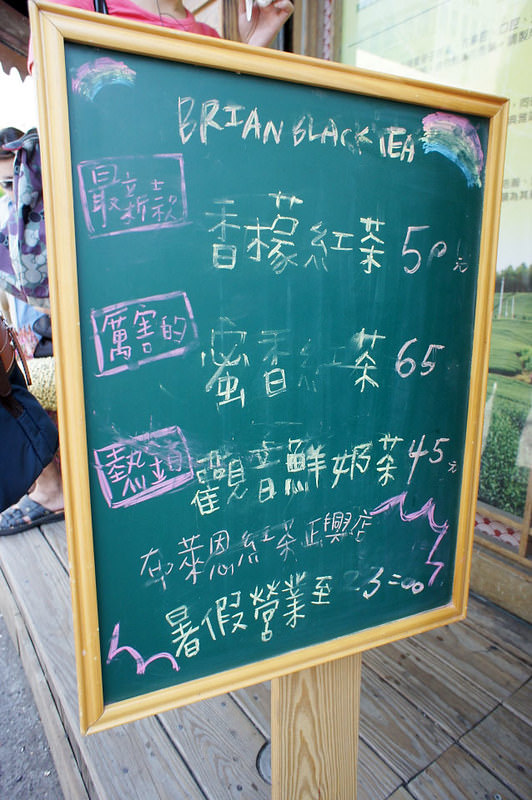 BRIAN BLACK TEA
最新款
香檬紅茶 50元
厲害的
蜜香紅茶 65
熱銷
觀音鮮奶茶 45元
布萊恩紅茶 正興店
暑假營業至 23:00